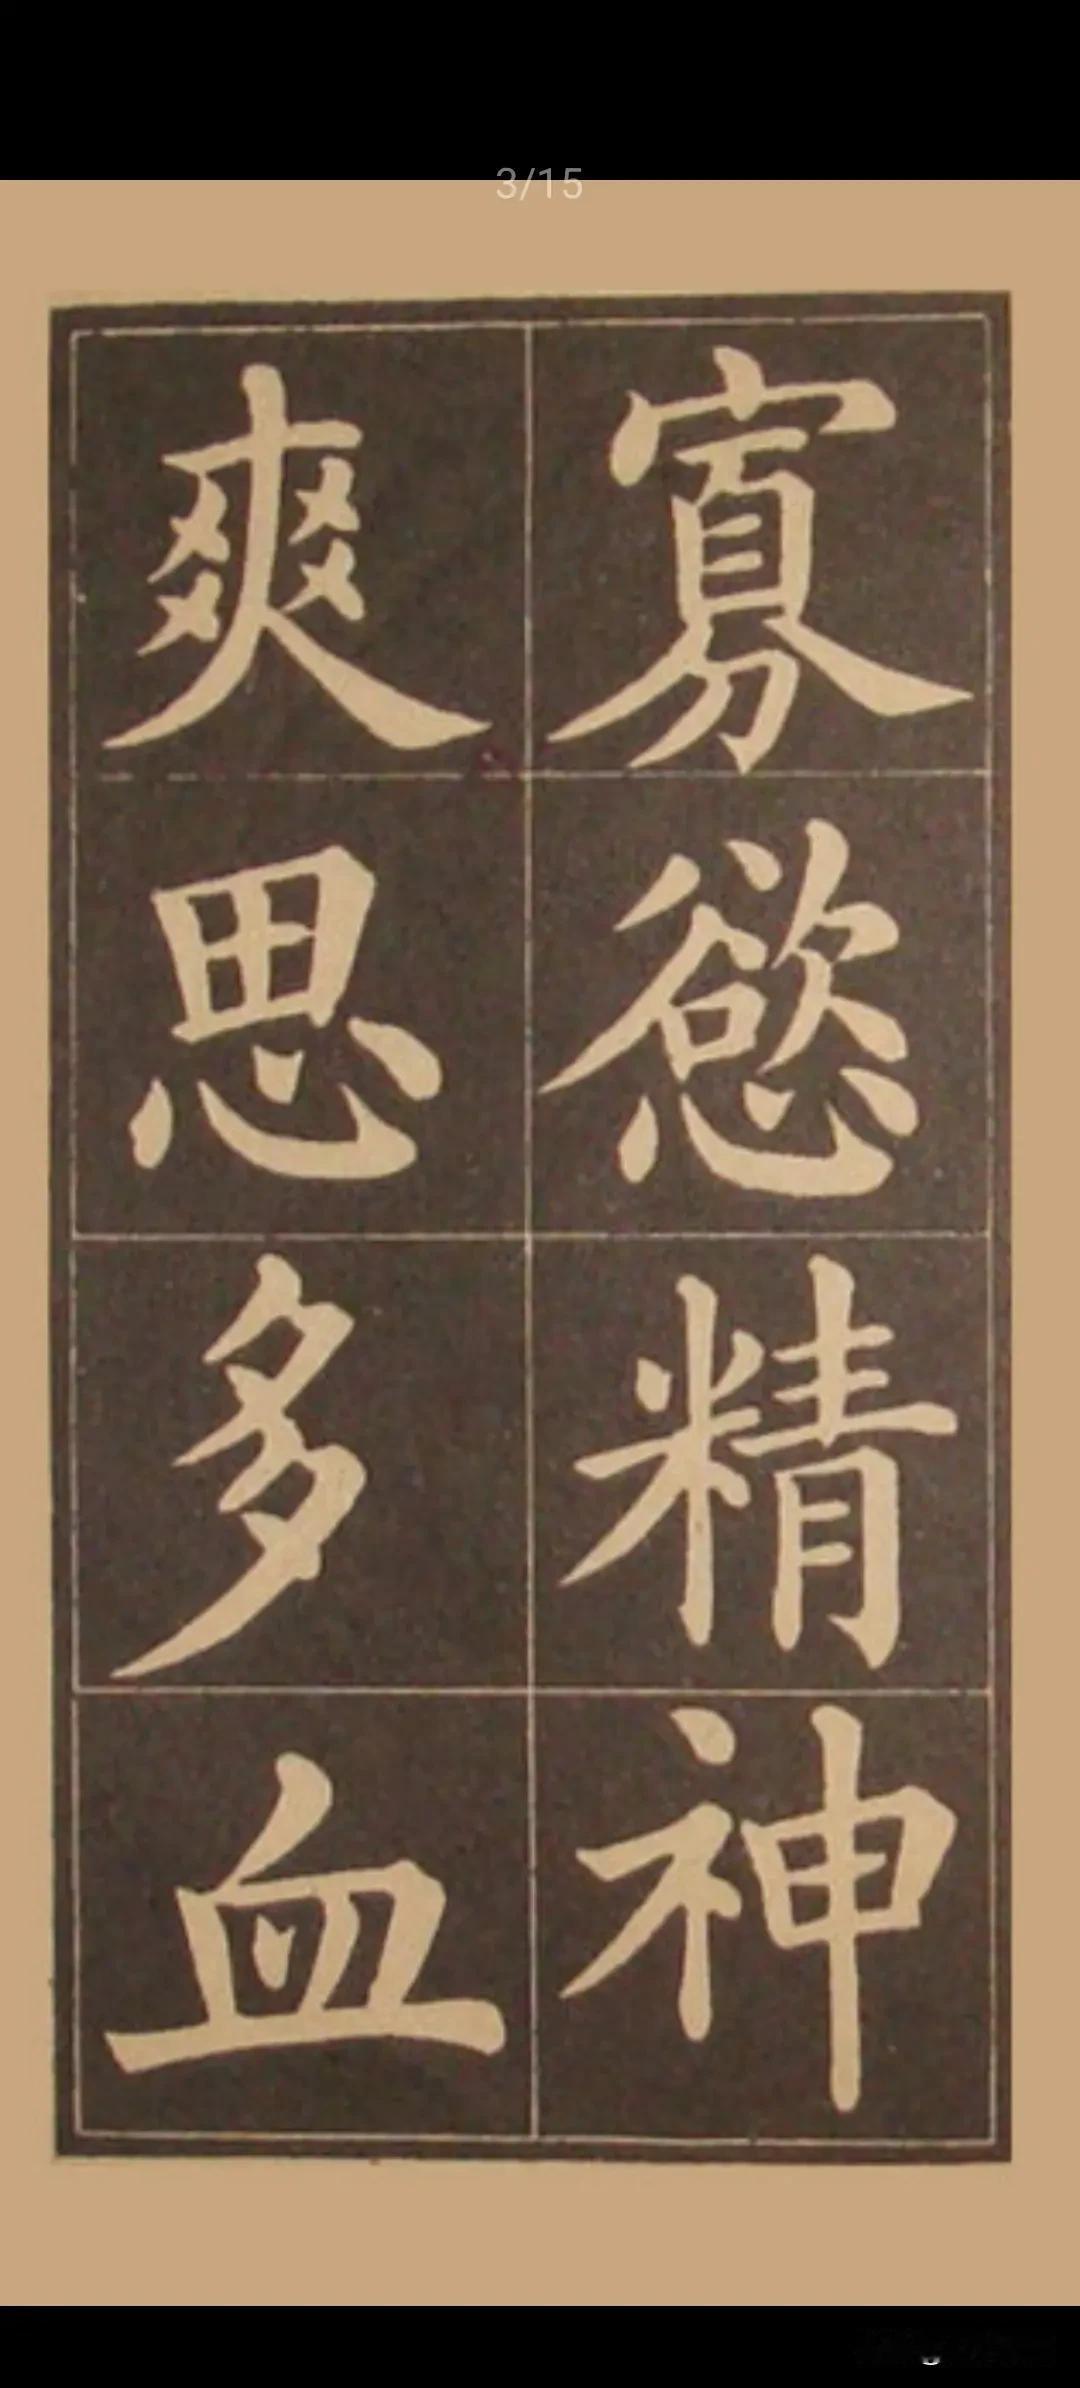 3/15
寡慾精神
爽思多血